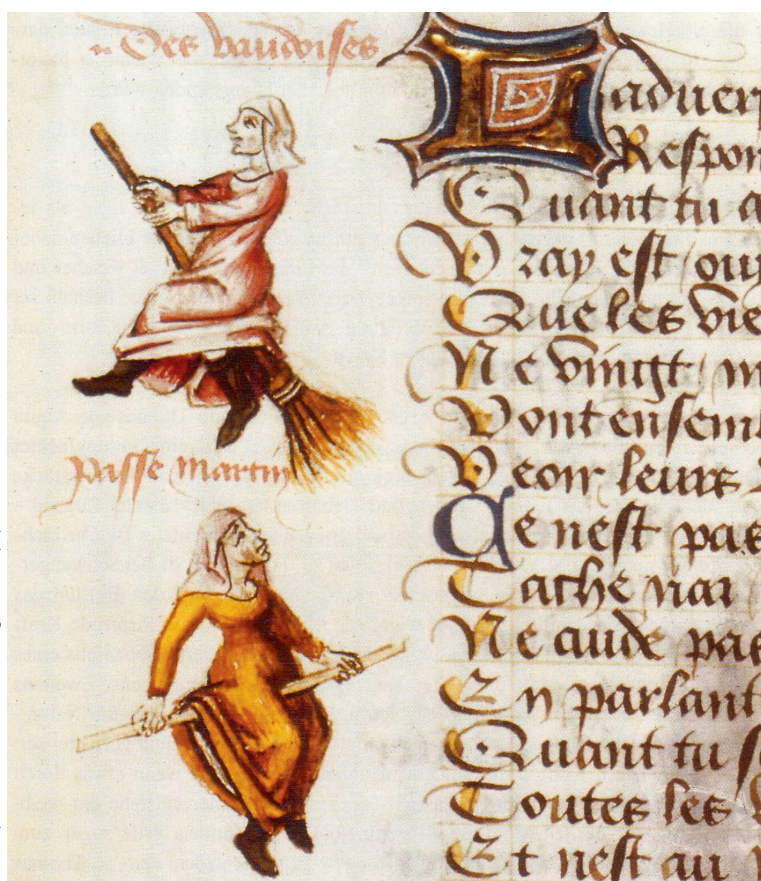 Des vaudoises
passe martin
Ladver
Respon
Quant tu a
Vray est ouy
Que les vie
Ne vingt m
Vont ensem
Veoir leurs
Ce nest pas
Tache nar
Ne cuide pas
En parlant
Quant tu s
Toutes les
Et nest au